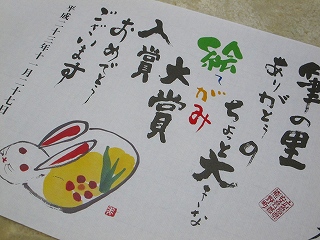 筆の里
ありがとうの
ちょっと大きな
絵てがみ
大賞
入賞
おめでとう
ございます
平成二十三年十一月二十七日